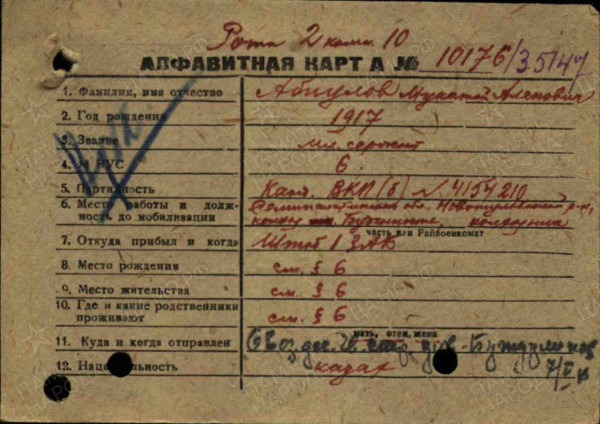 Рота 2 ком. 10
АЛФАВИТНАЯ КАРТА № 10176/35147
1. Фамилия, имя отчество Абигулов Мукатай
2. Год рождения 1917
3. Звание мл. сержант
4. № ВУС 6
5. Партийность Канд. ВКП(б) № 4154210
6. Место работы и долж- Семипалатинская обл., р-н,
ность до мобилизации колхоз колхозник
часть или Райвоенкомат
7. Откуда прибыл и когда Штаб 1 ЗАБ
8. Место рождения см. § 6
9. Место жительства см. § 6
10. Где и какие родственники
проживают см. § 6
мать, отец, жена
11. Куда и когда отправлен 6 Воз. дес.
12. Национальность казах